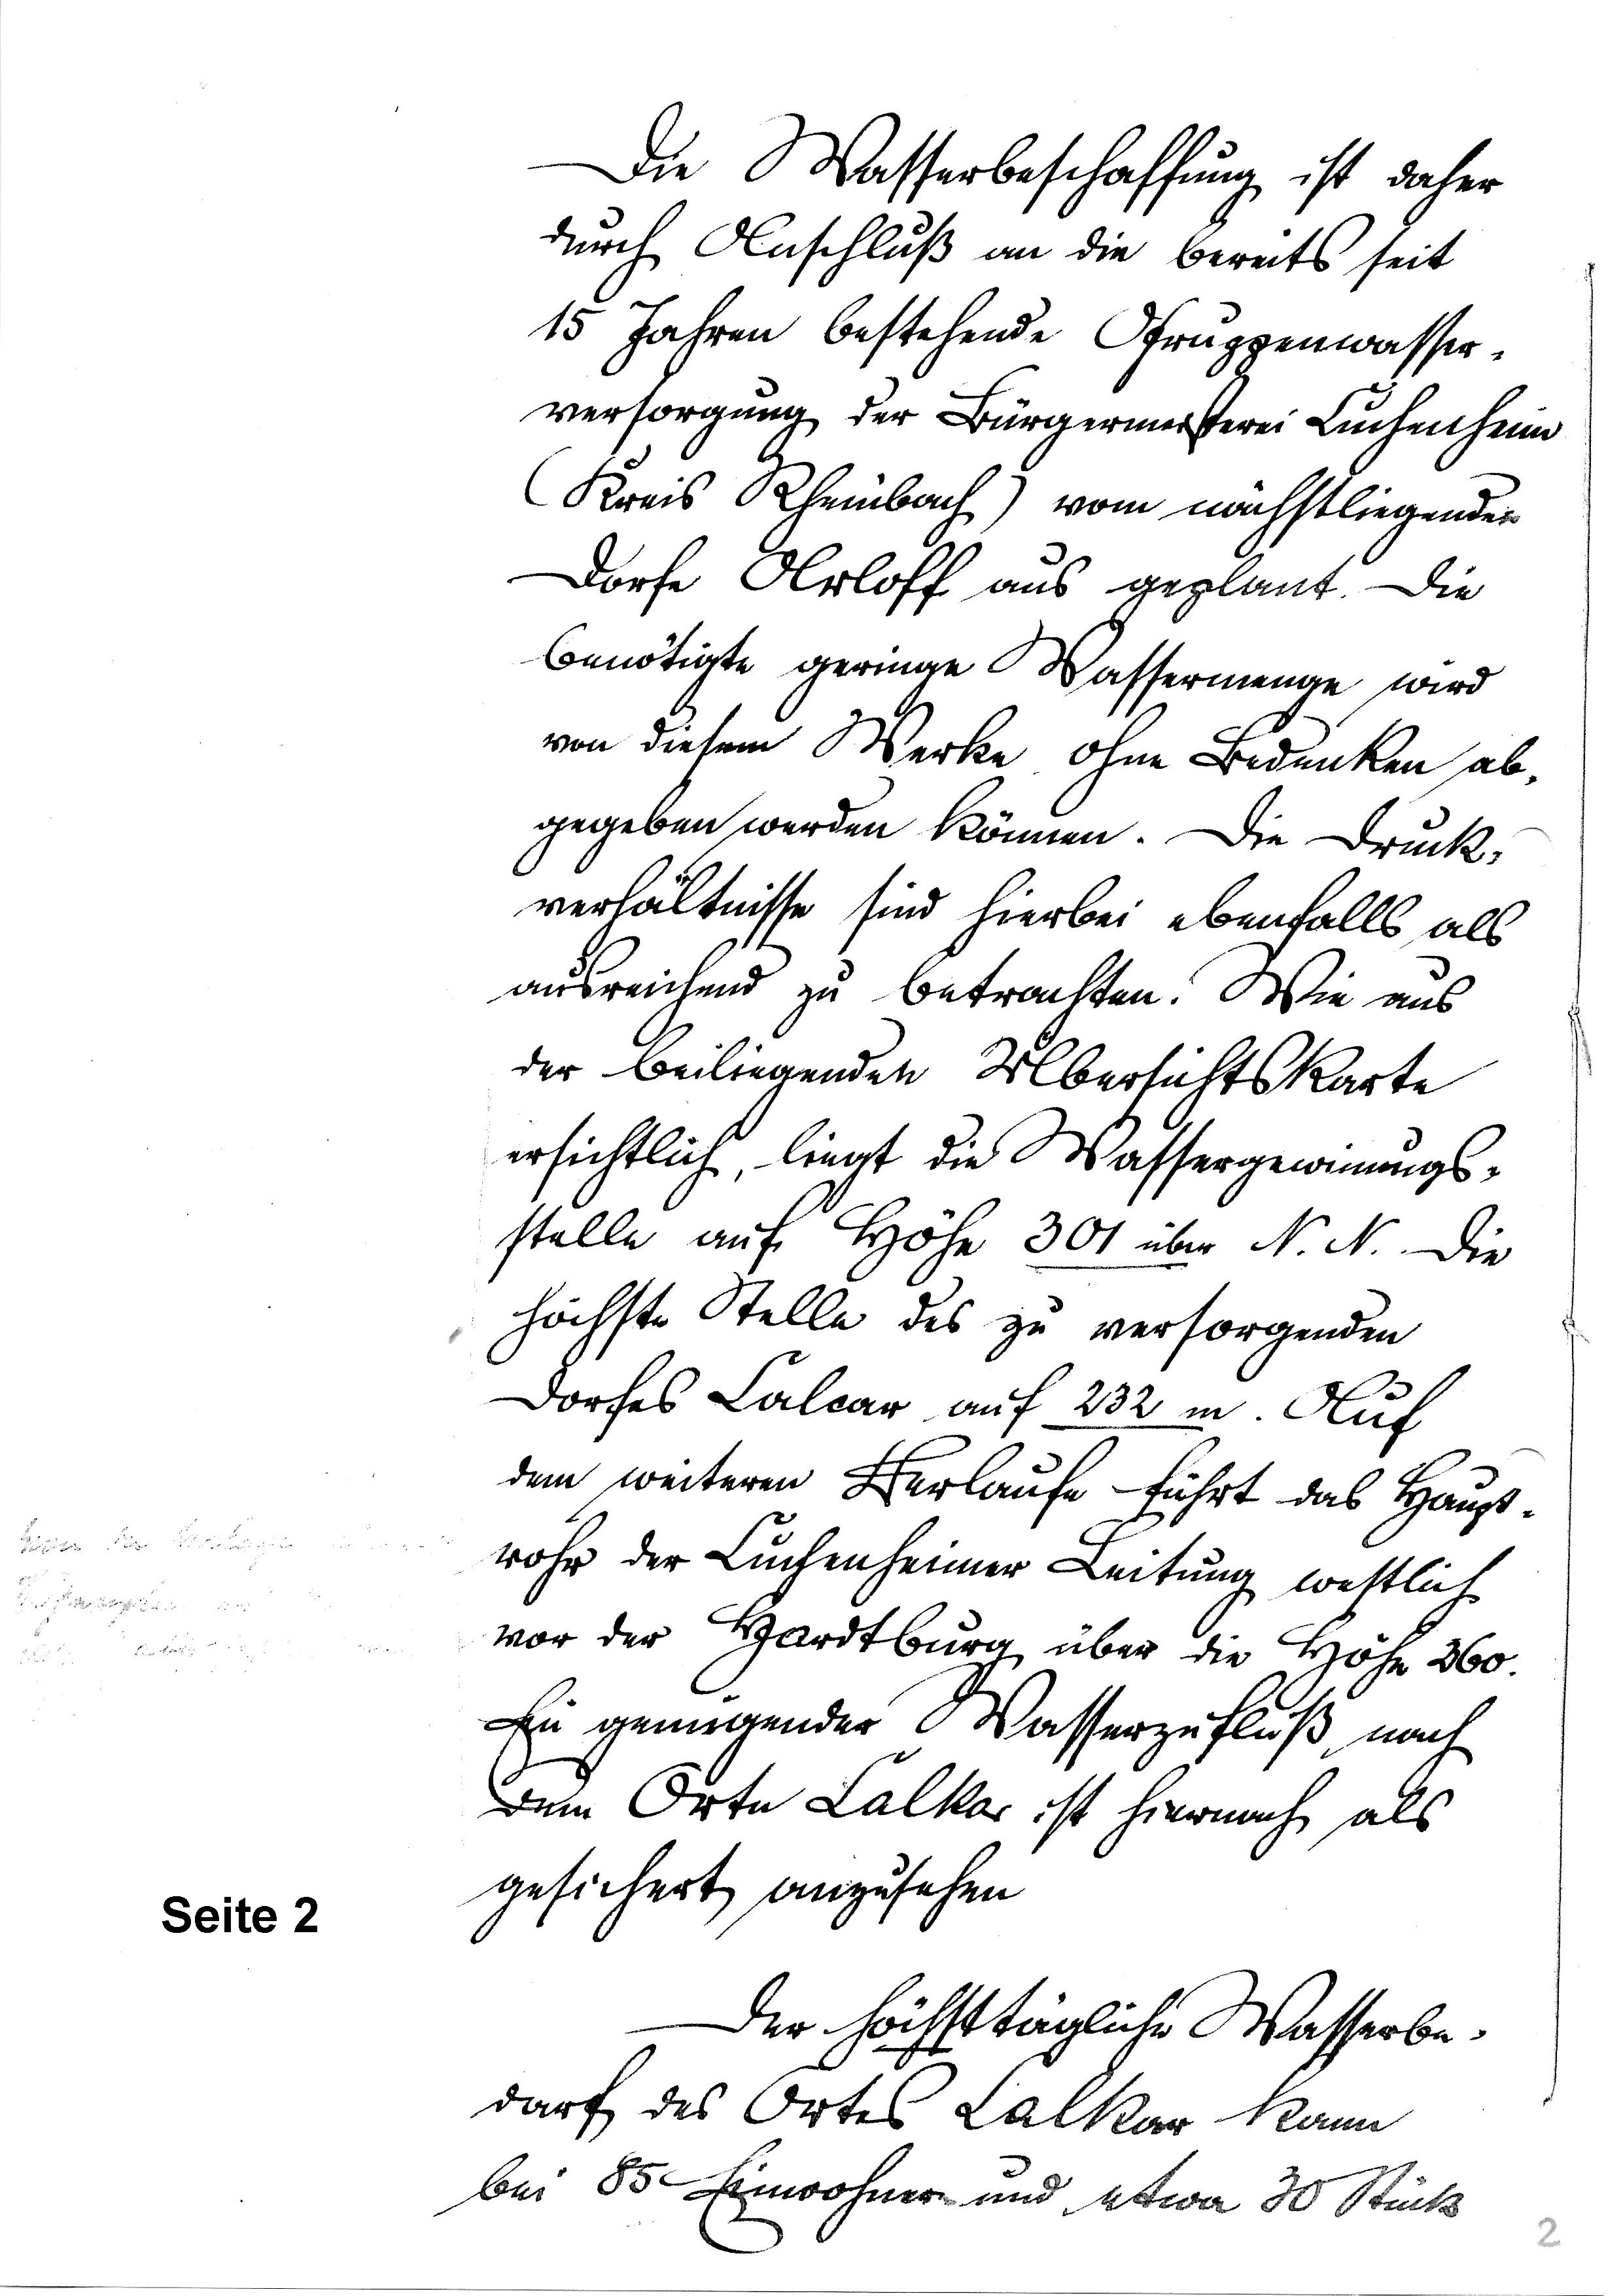 Die Wasserbeschaffung ist daher
durch Anschluß an die bereits seit
15 Jahren bestehende Gruppenwasser-
versorgung der Bürgermeisterei Cuchenheim
(Kreis Rheinbach) vom nächstliegenden
Dorfe Arloff aus geplant. Die
benötigte geringe Wassermenge wird
von diesem Werke ohne Bedenken ab-
gegeben werden können. Die Druck-
verhältnisse sind hierbei ebenfalls als
ausreichend zu betrachten. Wie aus
der beiliegenden Übersichtskarte
ersichtlich, liegt die Wassergewinnungs-
stelle auf Höhe 301 über N. N. Die
höchste Stelle des zu versorgenden
Dorfes Calcar auf 232 m. Auf
dem weiteren Verlaufe führt das Haupt-
rohr der Cuchenheimer Leitung westlich
vor der Hardtburg über die Höhe 360.
Ein genügender Wasserzufluß nach
dem Orte Calkar ist hiernach als
gesichert anzusehen
Seite 2
Der höchsttägliche Wasserbe-
darf des Ortes Calkar kann
bei 85 Einwohner und etwa 30 Stück
2